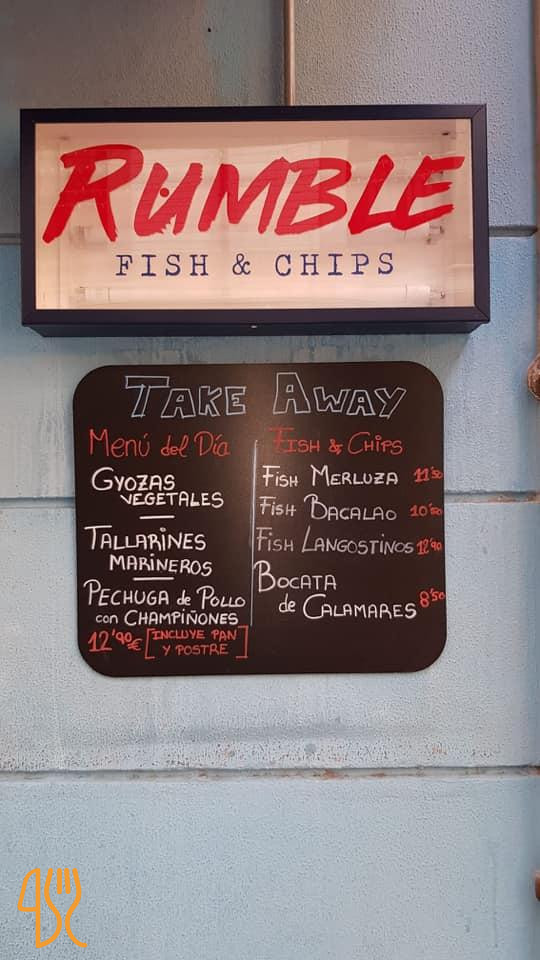 RUMBLE
FISH & CHIPS
TAKE AWAY
Menú del Día
GYOZAS
VEGETALES
TALLARINES
MARINEROS
PECHUGA de POLLO
con CHAMPIÑONES
12'90€ [INCLUYE PAN
Y POSTRE]
FISH & CHIPS
FISH MERLUZA 11'50
FISH BACALAO 10'50
FISH LANGOSTINOS 12'90
BOCATA
de CALAMARES 8'50